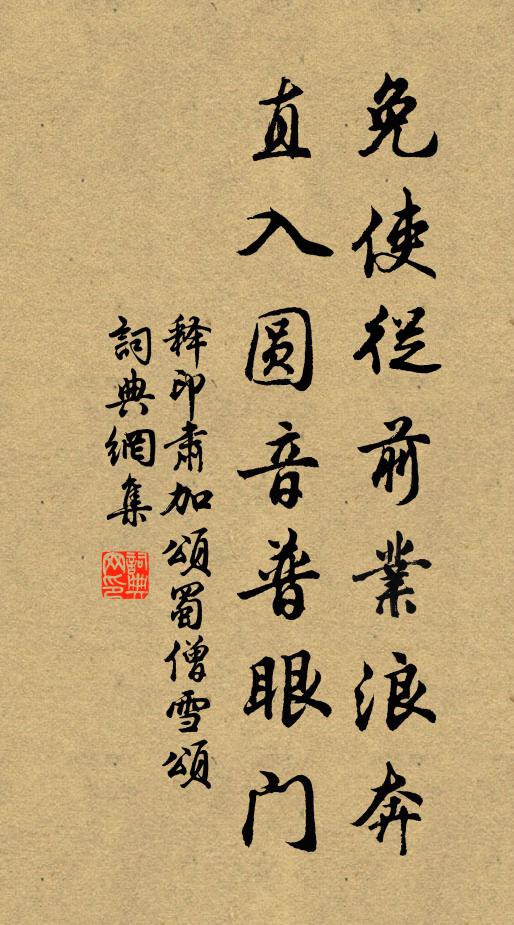 免使從前業浪奔
直入圓音普眼门
释印肅加頌蜀僧雪頌
詞典網集
詞典网印